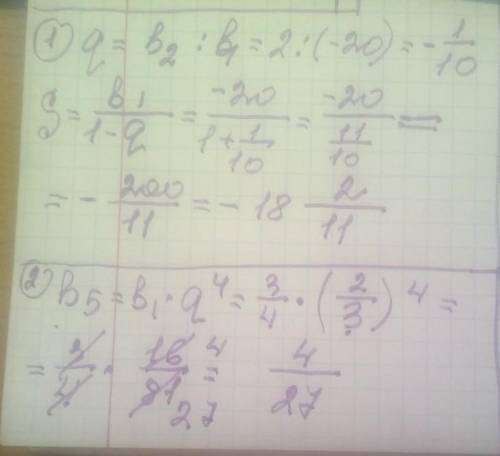 ① q = b₂ : b₁ = 2 : (-20) = - 1/10
S = b₁/(1-q) = -20/(1+1/10) = -20/(11/10) =
= - 200/11 = - 18 2/11
② b₅ = b₁ · q⁴ = 3/4 · (2/3)⁴ =
= 3/4 · 16/81 = 4/27
4
27